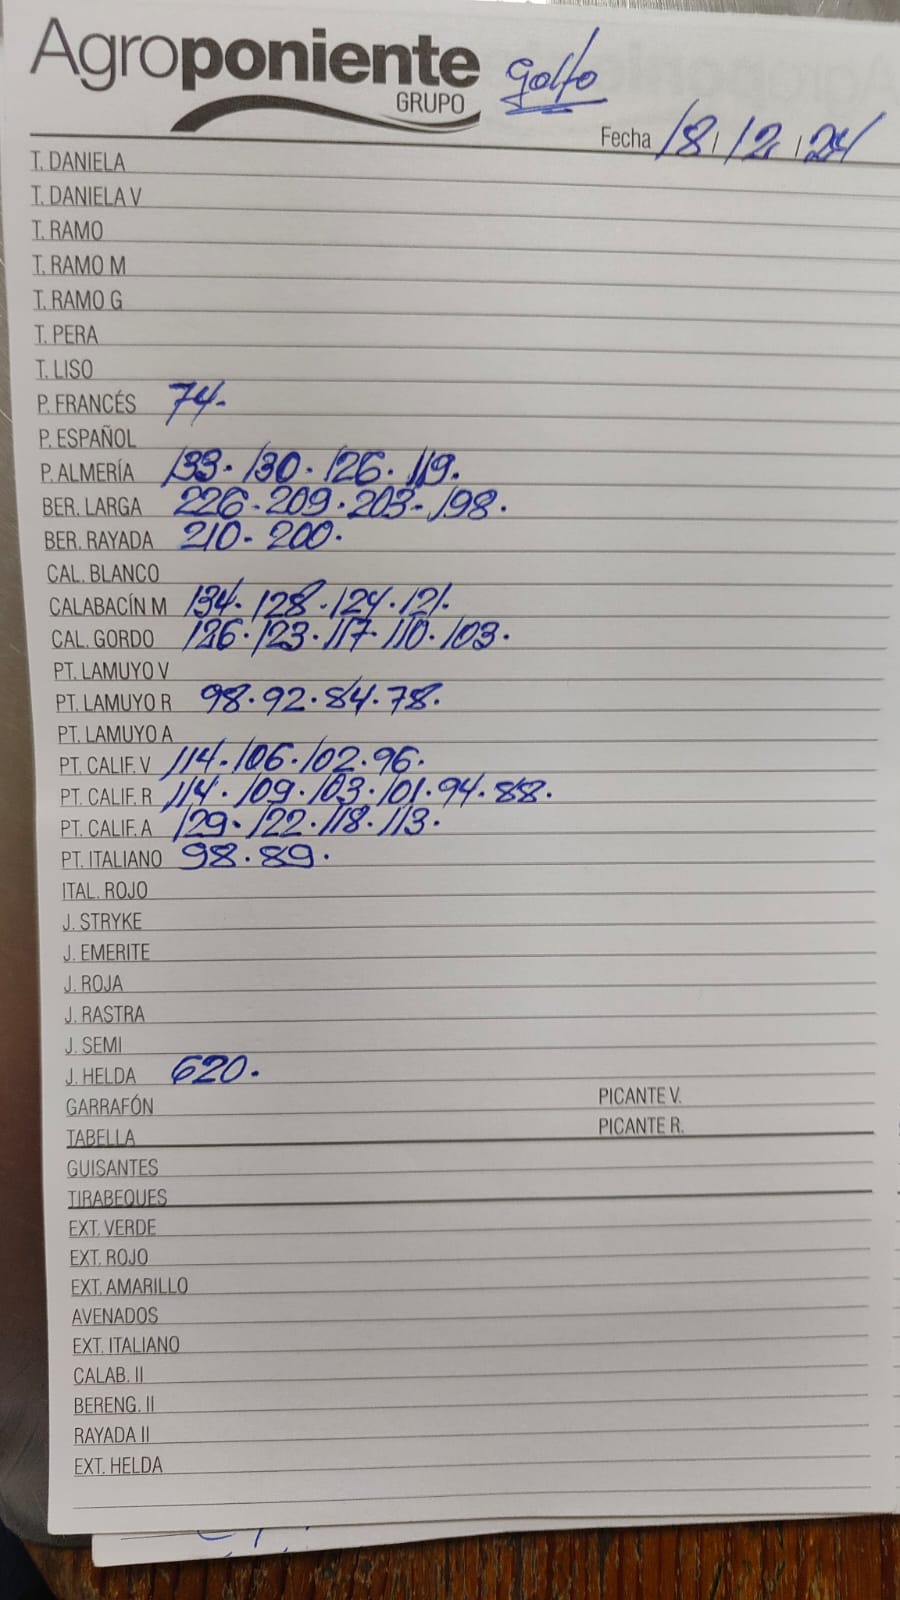 Agroponiente
GRUPO
Golfo
Fecha 18/12/24
T. DANIELA
T. DANIELA V
T. RAMO
T. RAMO M
T. RAMO G
T. PERA
T. LISO
P. FRANCÉS 74.
P. ESPAÑOL
P. ALMERÍA 133. 130. 126. 119.
BER. LARGA 226. 209. 203. 198.
BER. RAYADA 210. 200.
CAL. BLANCO
CALABACÍN M 134. 128. 124. 121.
CAL. GORDO 126. 123. 117. 110. 103.
PT. LAMUYO V
PT. LAMUYO R 98. 92. 84. 78.
PT. LAMUYO A
PT. CALIF. V 114. 106. 102. 96.
PT. CALIF. R 114. 109. 103. 101. 94. 88.
PT. CALIF. A 129. 122. 118. 113.
PT. ITALIANO 98. 89.
ITAL. ROJO
J. STRYKE
J. EMERITE
J. ROJA
J. RASTRA
J. SEMI
J. HELDA 620.
GARRAFÓN PICANTE V.
TABELLA PICANTE R.
GUISANTES
TIRABEQUES
EXT. VERDE
EXT. ROJO
EXT. AMARILLO
AVENADOS
EXT. ITALIANO
CALAB. II
BERENG. II
RAYADA II
EXT. HELDA